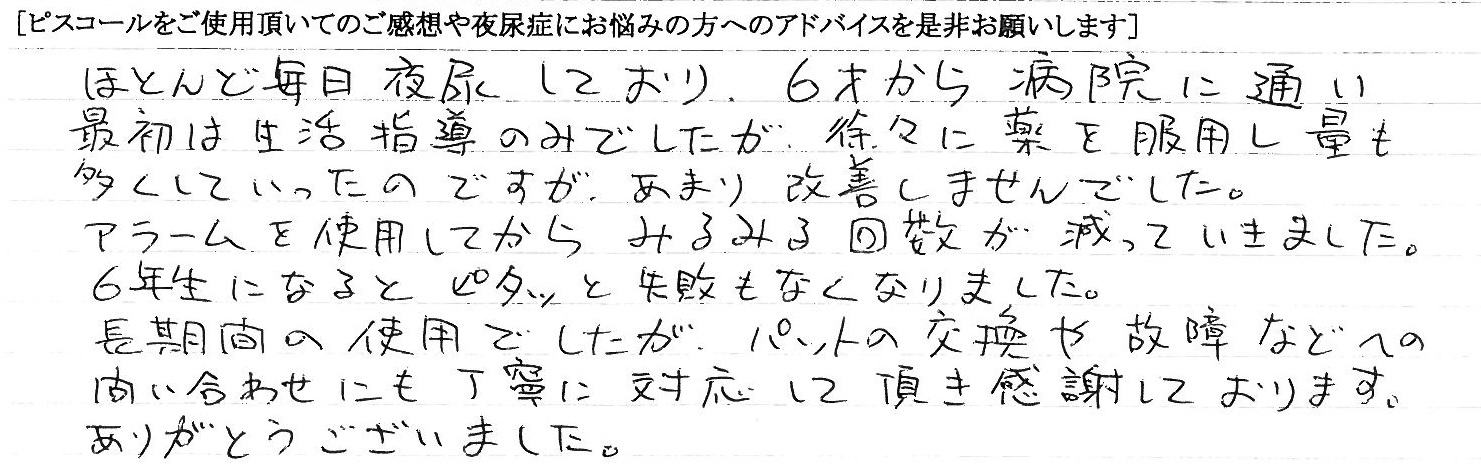 [ピスコールをご使用頂いてのご感想や夜尿症にお悩みの方へのアドバイスを是非お願いします]
ほとんど毎日夜尿しており、6才から病院に通い
最初は生活指導のみでしたが、徐々に薬を服用し量も
多くしていったのですが、あまり改善しませんでした。
アラームを使用してからみるみる回数が減っていきました。
6年生になるとピタッと失敗もなくなりました。
長期間の使用でしたが、パットの交換や故障などへの
問い合わせにも丁寧に対応して頂き感謝しております。
ありがとうございました。